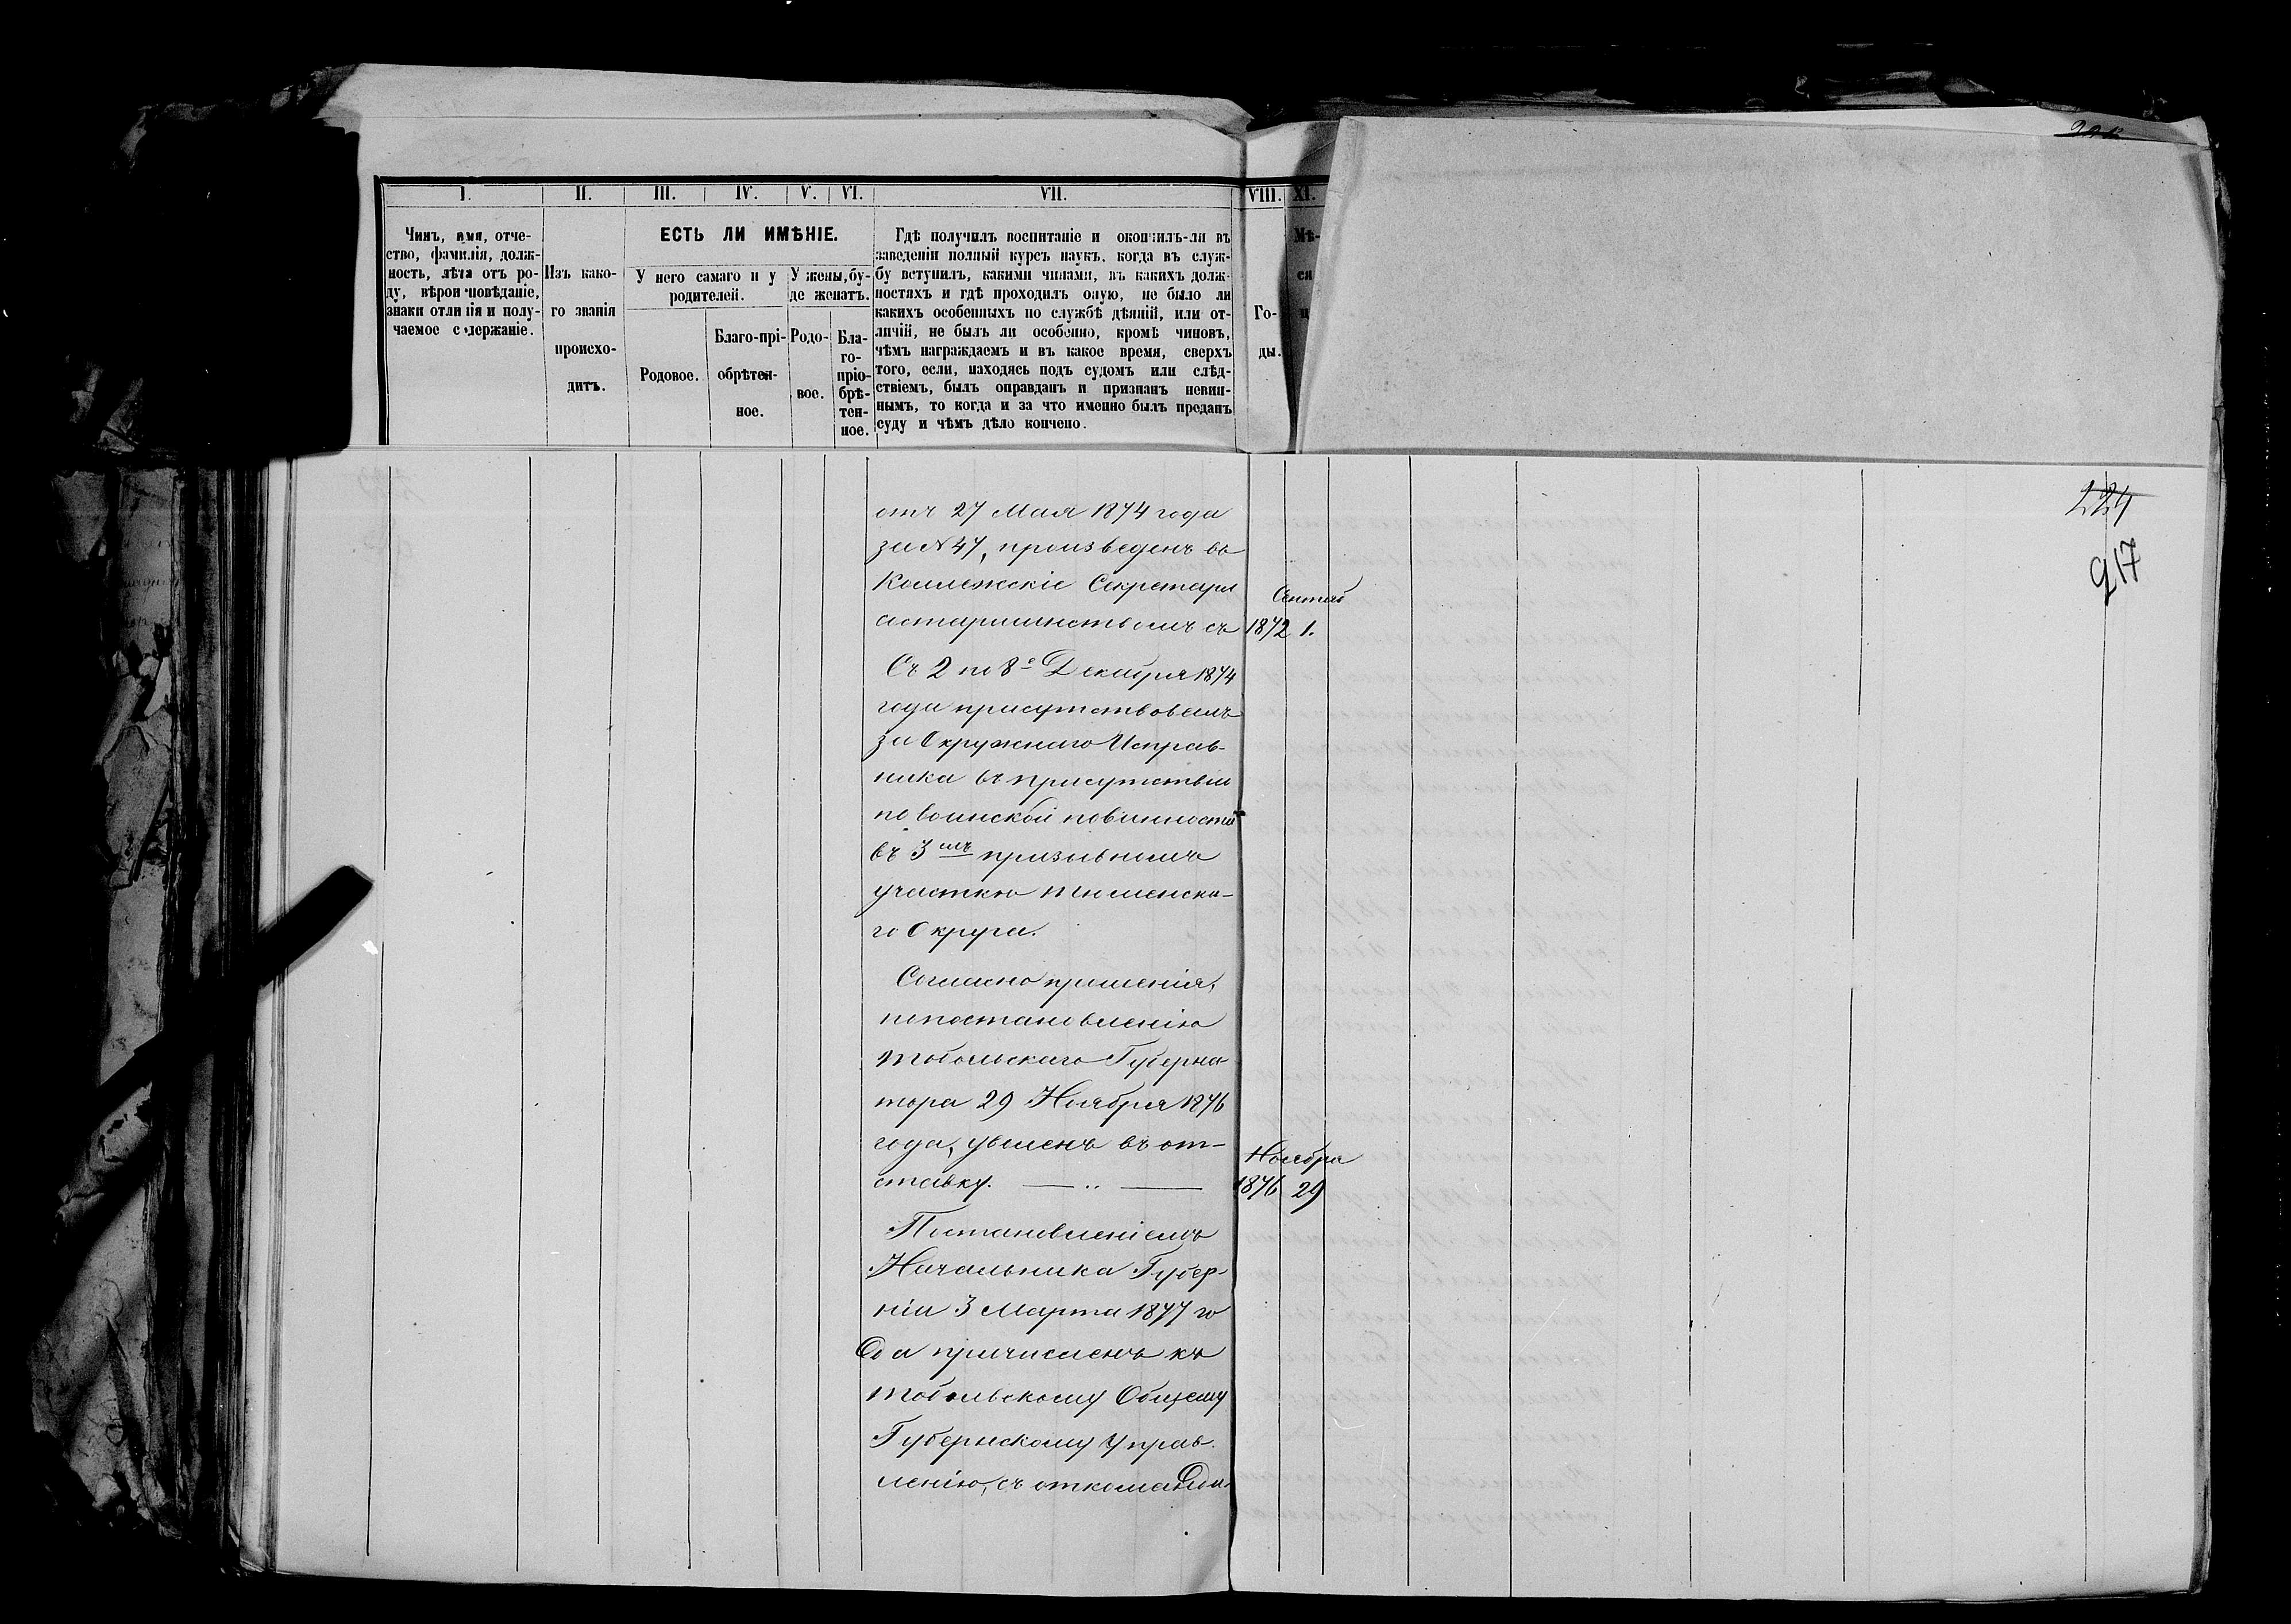 I. II. III. IV. V. VI. VII. VIII. XI.
Чинъ, имя, отче-
ство, фамилія, долж-
ность, лѣта отъ ро-
ду, вѣроисповѣданіе,
знаки отличія и полу-
чаемое содержаніе.
Изъ како-
го званія
происхо-
дитъ.
ЕСТЬ ЛИ ИМѢНІЕ.
У него самаго и у
родителей.
Родовое.
Благо-прі-
обрѣтен-
ное.
У жены, бу-
де женатъ.
Родо-
вое.
Бла-
го-
пріо-
брѣ-
тен-
ное.
Гдѣ получилъ воспитаніе и окончилъ-ли въ
заведеніи полный курсъ наукъ, когда въ служ-
бу вступилъ, какими чинами, въ какихъ долж-
ностяхъ и гдѣ проходилъ оную, не было ли
какихъ особенныхъ по службѣ дѣяній, или от-
личій, не былъ ли особенно, кромѣ чиновъ,
чѣмъ награждаемъ и въ какое время, сверхъ
того, если, находясь подъ судомъ или слѣд-
ствіемъ, былъ оправданъ и признанъ невин-
нымъ, то когда и за что именно былъ преданъ
суду и чѣмъ дѣло кончено.
Го-
ды.
Мѣ-
ся
ц
224
217
отъ 27 Мая 1874 года
за № 47, произведенъ въ
Коллежскіе Секретари
Сентяб
состаршинствомъ съ 1872 1.
Съ 2 по 8е Декабря 1874
года присутствовалъ
за Окружнаго Исправ-
ника въ присутствіи
по воинской повинности
въ 3мъ призывномъ
участкѣ Тюменска-
го Округа.
Согласно прошенія,
попостановленію
Тобольскаго Губерна-
тора 29 Ноября 1876
года, уволенъ въ от-
Ноября
ставку. — „ — 1876 29
Постановленіемъ
Начальника Губер-
ніи 3 Марта 1877 го
да причисленъ къ
Тобольскому Общему
Губернскому Управ-
ленію, съ откоманди-